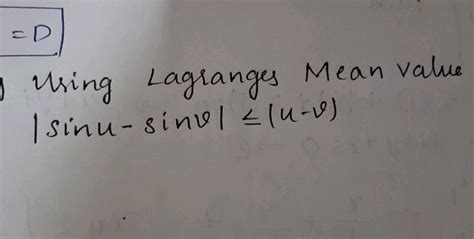 = D
Using Lagranges Mean value
|sinu - sinv| ≤ (u-v)